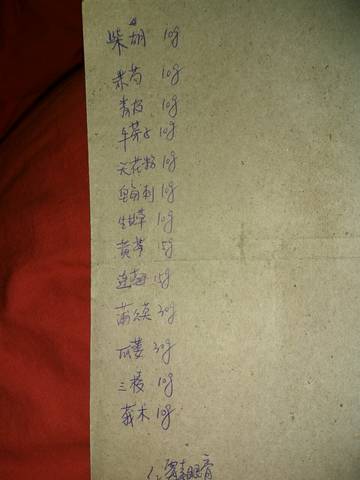 柴胡 10g
赤芍 10g
青皮 10g
车前子 10g
天花粉 10g
皂角刺 10g
生甘草 10g
黄芩 15g
连翘 15g
蒲公英 30g
瓜蒌 30g
三棱 10g
莪术 10g
眼膏